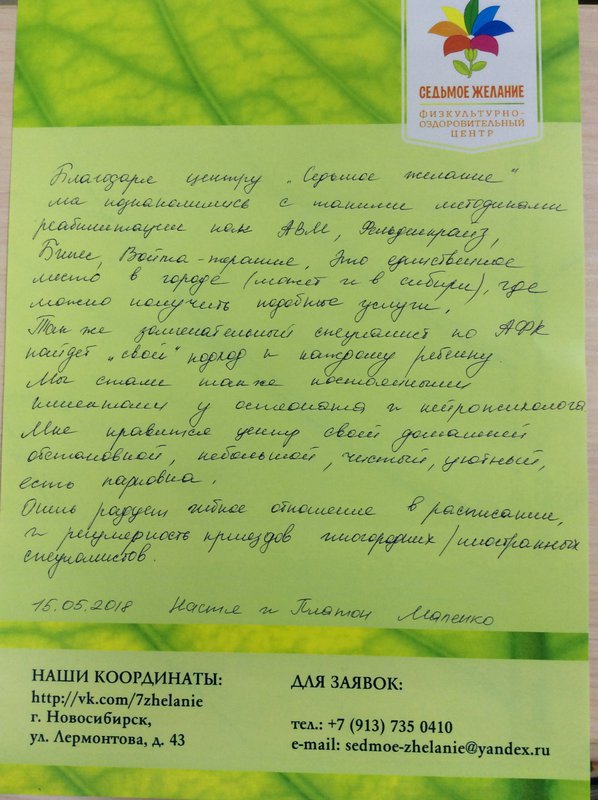 СЕДЬМОЕ ЖЕЛАНИЕ
ФИЗКУЛЬТУРНО-
ОЗДОРОВИТЕЛЬНЫЙ
ЦЕНТР
Благодаря центру „Седьмое желание"
мы познакомились с такими методиками
реабилитации как АВМ, Фельденкрайз,
Войта-терапия, Это единственное
место в городе (может и в сибири), где
можно получить подобные услуги.
Так же замечательный специалист по АФК
найдет „свой" подход к каждому ребенку.
Мы стали также постоянными
клиентами у остеопата и нейропсихолога
Мне нравится центр своей домашней
обстановкой, небольшой, чистый, уютный,
есть парковка.
Очень радует гибкое отношение в расписании,
и регулярность приездов иногородних/иностранных
специалистов.
15.05.2018 Настя и Платон
НАШИ КООРДИНАТЫ:
http://vk.com/7zhelanie
г. Новосибирск,
ул. Лермонтова, д. 43
ДЛЯ ЗАЯВОК:
тел.: +7 (913) 735 0410
e-mail: sedmoe-zhelanie@yandex.ru